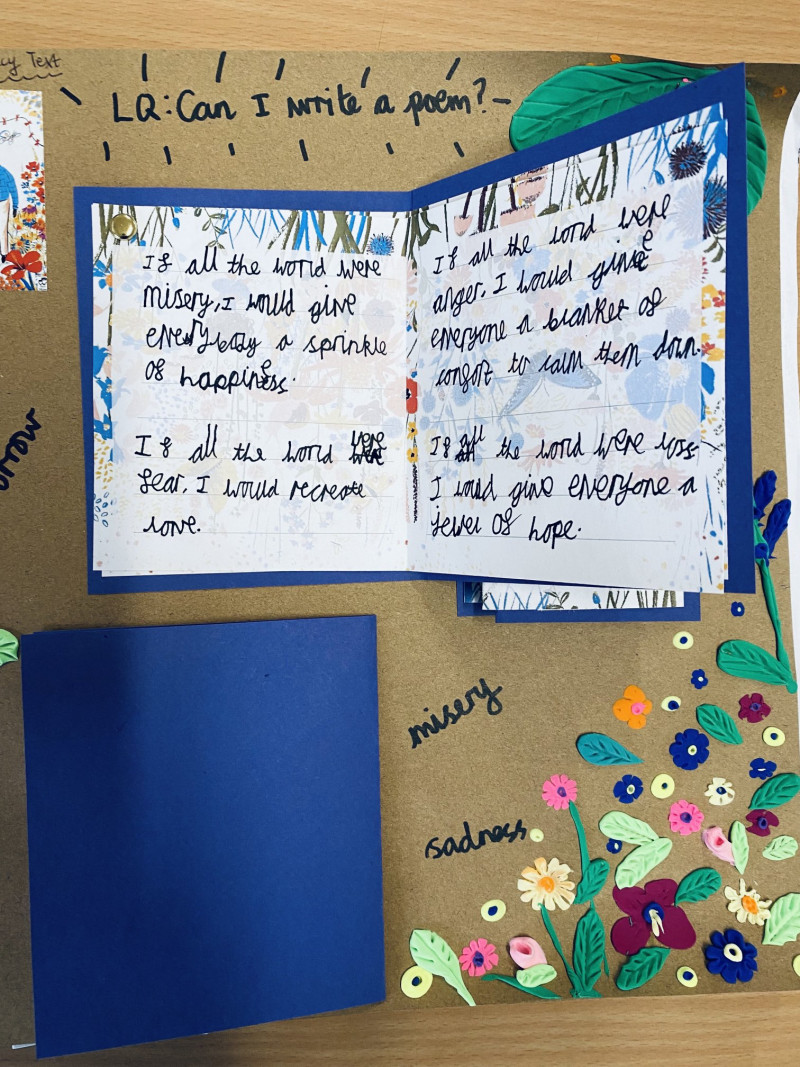 cy Text
LQ: Can I write a poem?
If all the world were
misery, I would give
everybody a sprinkle
of happiness.
If all the world were
fear, I would recreate
love.
If all the world were
anger, I would give
everyone a blanket of
comfort to calm them down.
If all the world were loss
I would give everyone a
jewel of hope.
orrow
misery
sadness